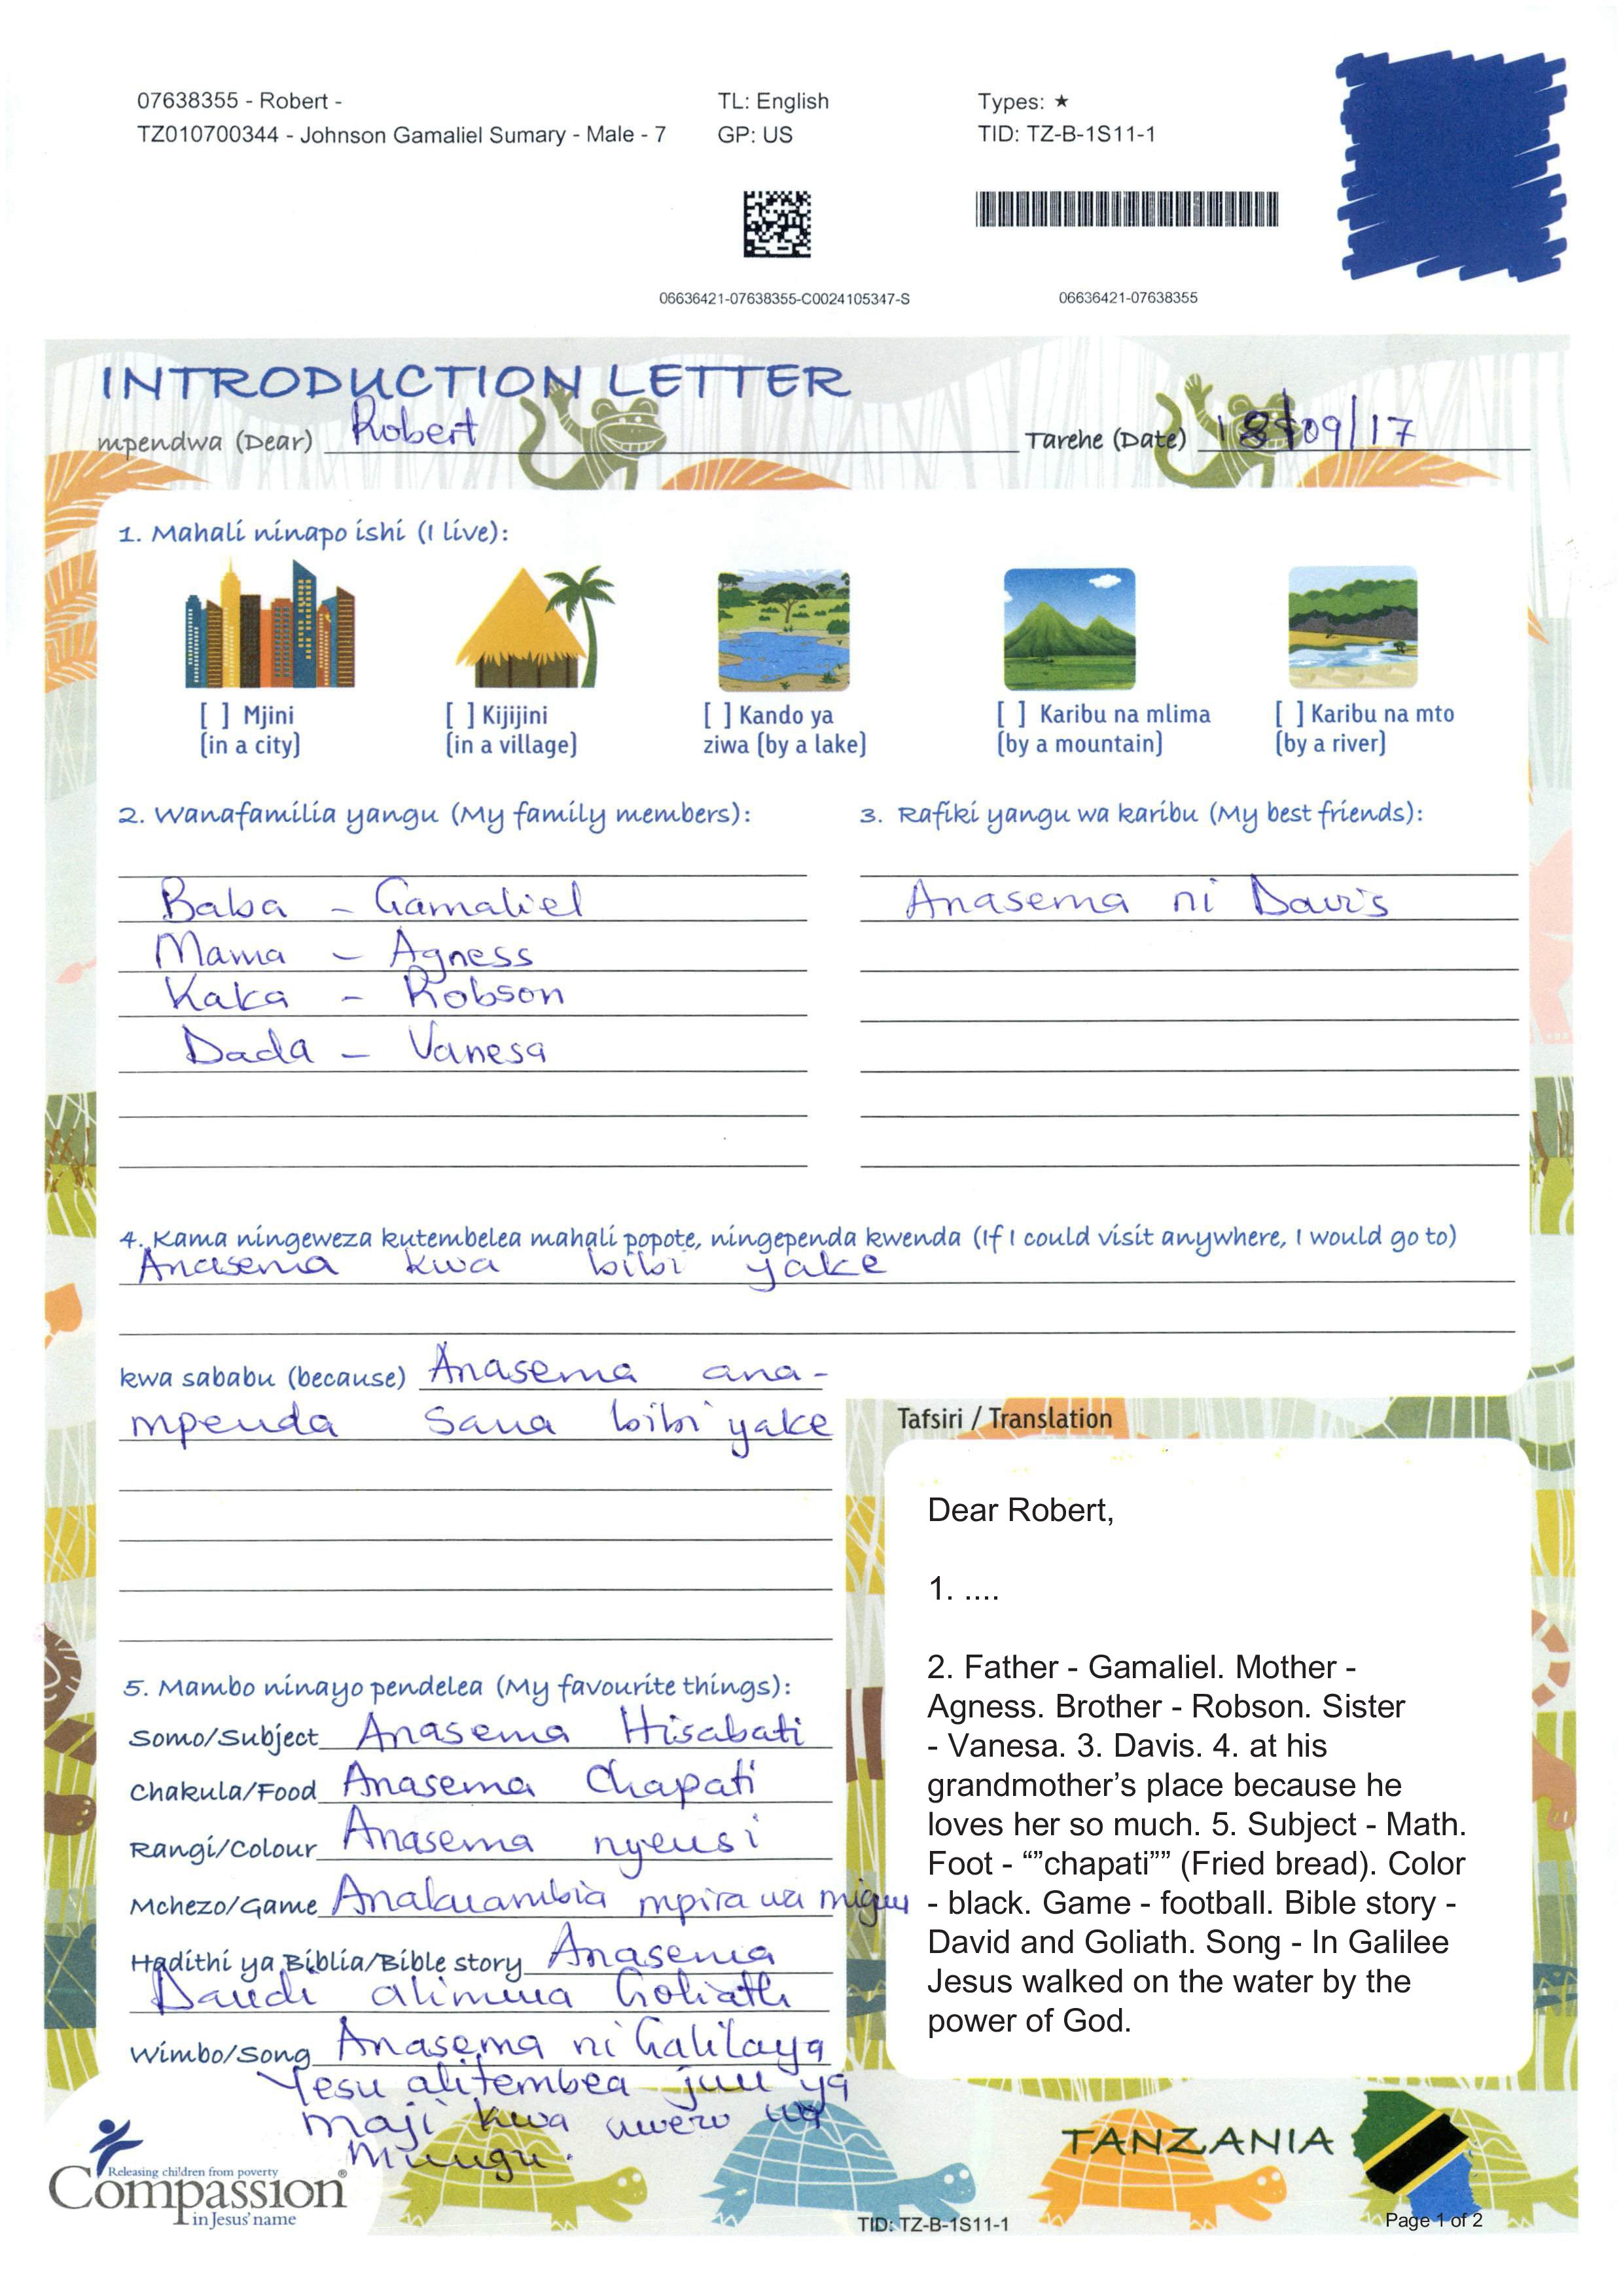 07638355 - Robert -
TZ010700344 - Johnson Gamaliel Sumary - Male - 7
TL: English
GP: US
Types: ★
TID: TZ-B-1S11-1
06636421-07638355-C0024105347-S
06636421-07638355
INTRODUCTION LETTER
mpendwa (Dear) Robert
Tarehe (Date) 18/09/17
1. Mahali ninapo ishi (I live):
[ ] Mjini
(in a city)
[ ] Kijijini
(in a village)
[ ] Kando ya
ziwa (by a lake)
[ ] Karibu na mlima
(by a mountain)
[ ] Karibu na mto
(by a river)
2. Wanafamilia yangu (My family members):
Baba - Gamaliel
Mama - Agness
Kaka - Robson
Dada - Vanesa
3. Rafiki yangu wa karibu (My best friends):
Anasema ni Davis
4. Kama ningeweza kutembelea mahali popote, ningependa kwenda (If I could visit anywhere, I would go to)
Anasema kwa bibi yake
kwa sababu (because) Anasema ana-
mpenda sana bibi yake
5. Mambo ninayo pendelea (My favourite things):
Somo/Subject Anasema Hisabati
Chakula/Food Anasema Chapati
Rangi/Colour Anasema nyeusi
Mchezo/Game mpira wa miguu
Hadithi ya Biblia/Bible story Anasema
Daudi alimuua Goliath
Wimbo/Song Anasema ni Galilaya
Yesu alitembea juu ya
maji kwa uwezo wa
Mungu.
Tafsiri / Translation
Dear Robert,
1. ....
2. Father - Gamaliel. Mother -
Agness. Brother - Robson. Sister
- Vanesa. 3. Davis. 4. at his
grandmother's place because he
loves her so much. 5. Subject - Math.
Foot - “”chapati”” (Fried bread). Color
- black. Game - football. Bible story -
David and Goliath. Song - In Galilee
Jesus walked on the water by the
power of God.
Releasing children from poverty
Compassion®
in Jesus' name
TANZANIA
TID: TZ-B-1S11-1
Page 1 of 2